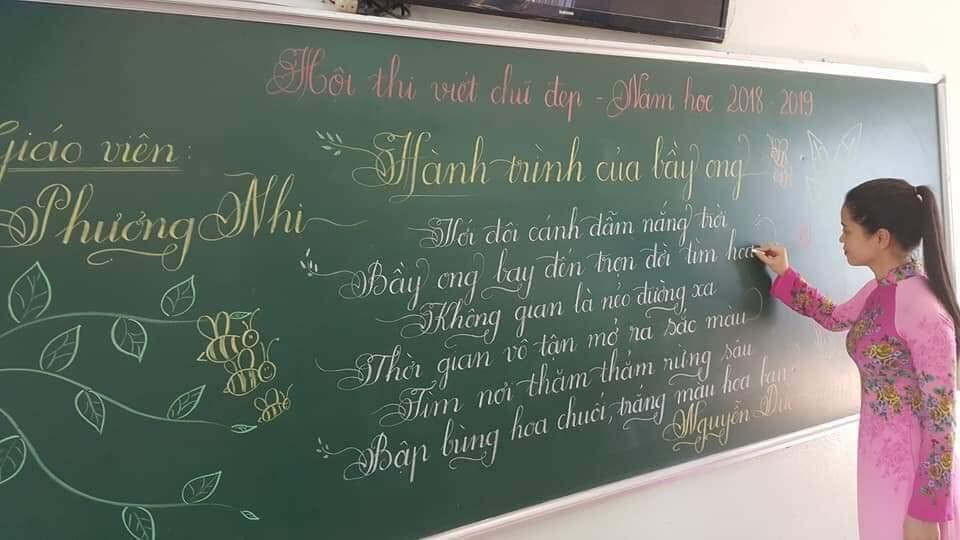 SAMSUNG
Hội thi viết chữ đẹp - Năm học 2018 - 2019
Giáo viên:
Phương Nhi
Hành trình của bầy ong
Với đôi cánh đẫm nắng trời
Bầy ong bay đến trọn đời tìm hoa
Không gian là nẻo đường xa
Thời gian vô tận mở ra sắc màu
Tìm nơi thăm thẳm rừng sâu
Bập bùng hoa chuối, trắng màu hoa ban.
Nguyễn Đức